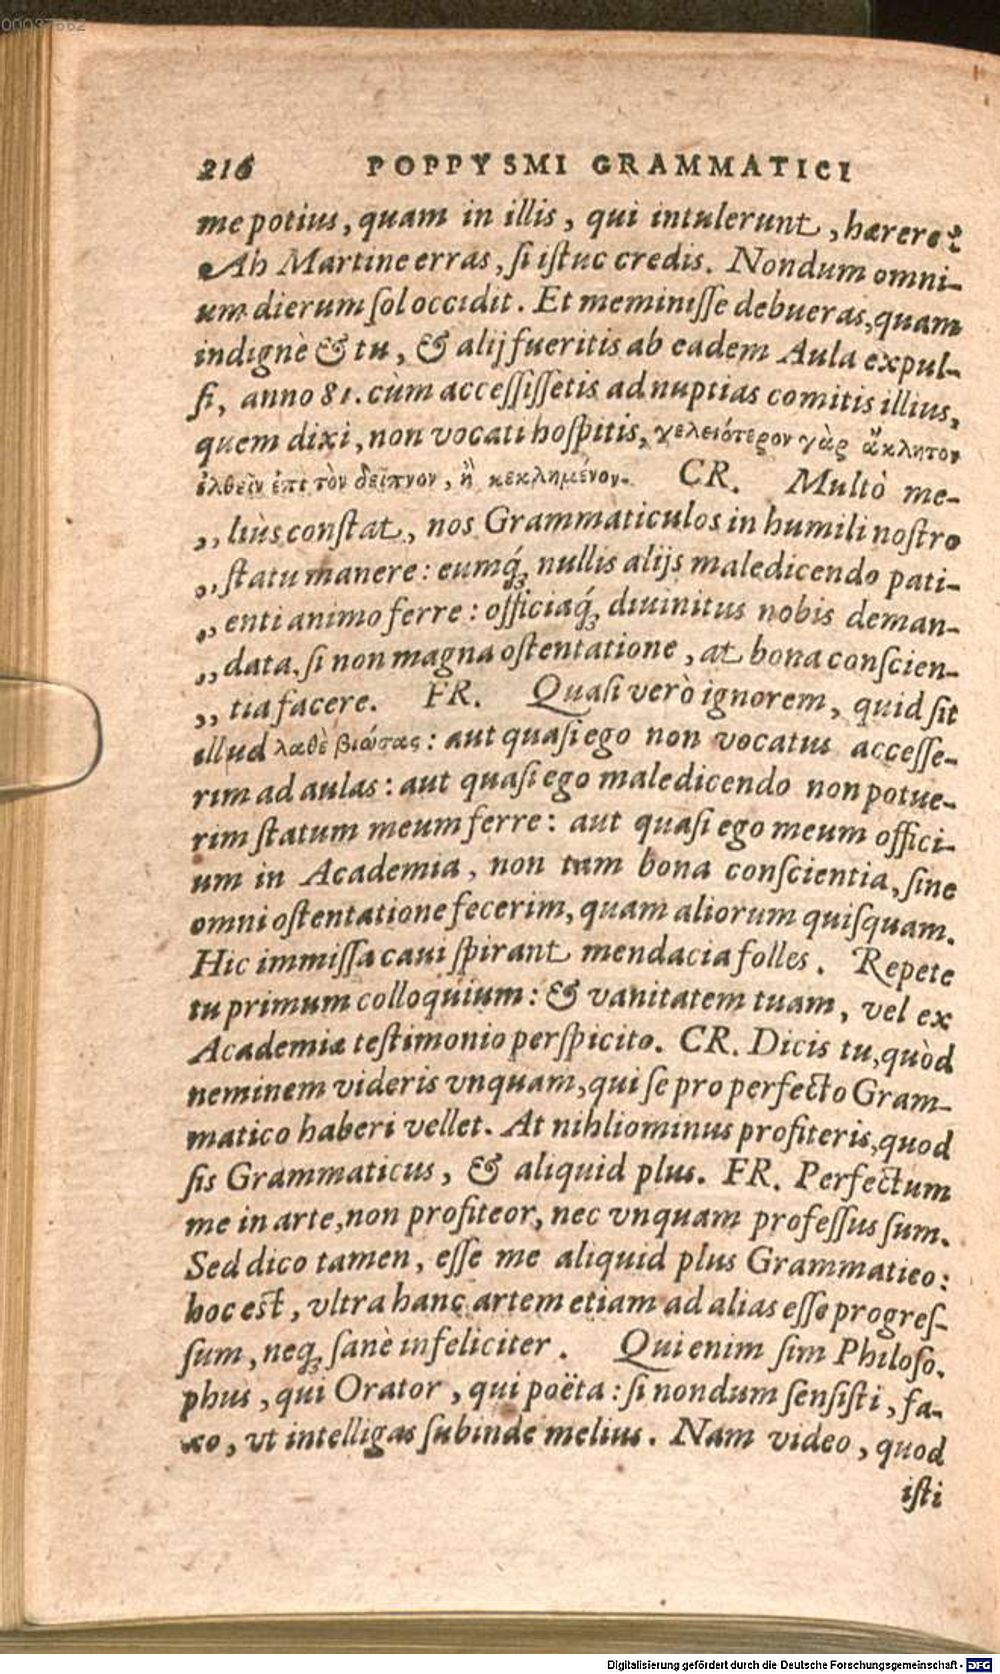 00037662
216 POPPYSMI GRAMMATICI
me potius, quam in illis, qui intulerunt, hærere?
Ah Martine erras, ſi iſtuc credis. Nondum omni-
um dierum ſol occidit. Et meminiſſe debueras, quam
indignè & tu, & alij fueritis ab eadem Aula expul-
ſi, anno 81. cùm acceſſiſſetis ad nuptias comitis illius,
quem dixi, non vocati hoſpitis, γελειότερον γὰρ ἄκλητον
ἐλθεῖν ἐπὶ τὸν δεῖπνον, ἢ κεκλημένον. CR. Multò me-
„ liùs conſtat, nos Grammaticulos in humili noſtro
„ ſtatu manere: eumq́ꝫ nullis alijs maledicendo pati-
„ enti animo ferre: officiaq́ꝫ diuinitus nobis deman-
„ data, ſi non magna oſtentatione, at bona conſcien-
„ tia facere. FR. Quaſi verò ignorem, quid ſit
illud λαθὲ βιώσας: aut quaſi ego non vocatus acceſſe-
rim ad aulas: aut quaſi ego maledicendo non potue-
rim ſtatum meum ferre: aut quaſi ego meum offici-
um in Academia, non tam bona conſcientia, ſine
omni oſtentatione fecerim, quam aliorum quiſquam.
Hic immiſſa caui ſpirant mendacia folles. Repete
tu primum colloquium: & vanitatem tuam, vel ex
Academiæ teſtimonio perſpicito. CR. Dicis tu, quòd
neminem videris vnquam, qui ſe pro perfecto Gram-
matico haberi vellet. At nihliominus profiteris, quod
ſis Grammaticus, & aliquid plus. FR. Perfectum
me in arte, non profiteor, nec vnquam profeſſus ſum.
Sed dico tamen, eſſe me aliquid plus Grammatico:
hoc eſt, vltra hanc artem etiam ad alias eſſe progreſ-
ſum, neqꝫ ſanè infeliciter. Qui enim ſim Philoſo-
phus, qui Orator, qui poëta: ſi nondum ſenſiſti, fa-
xo, vt intelligas ſubinde melius. Nam video, quod
iſti
Digitalisierung gefördert durch die Deutsche Forschungsgemeinschaft - DFG